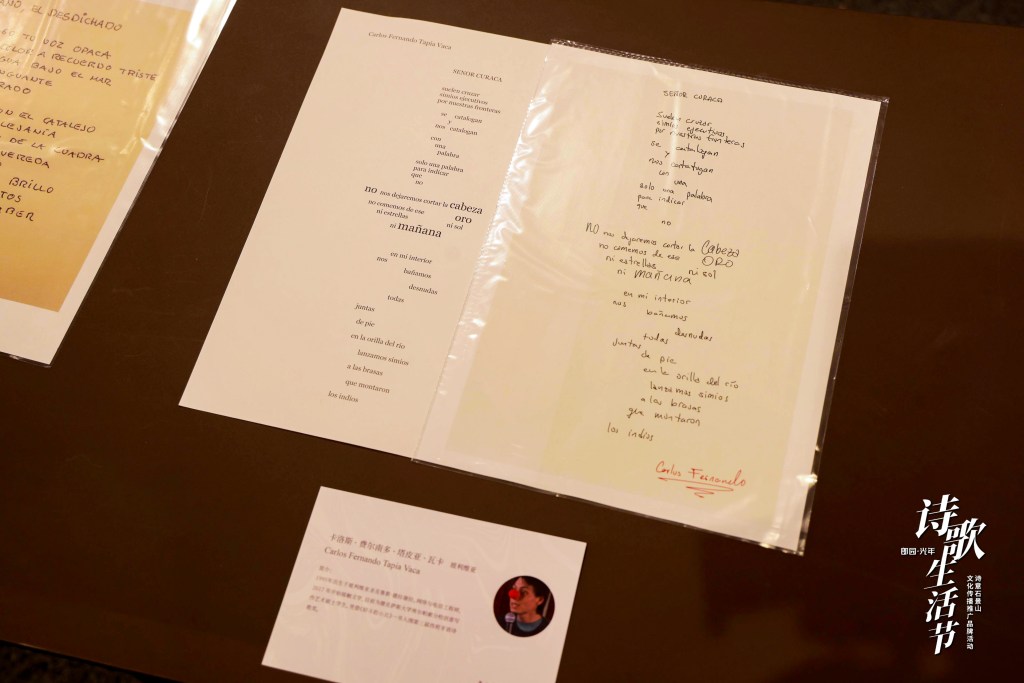 NO, EL DESDICHADO
TU VOZ OPACA
A RECUERDO TRISTE
BAJO EL MAR
EL CATALEJO
LEJANÍA
DE LA CUADRA
BRILLO
Carlos Fernando Tapia Vaca
SENOR CURACA
suelen cruzar
simios ejecutivos
por nuestras fronteras
se catalogan
y
nos catalogan
con
una
palabra
solo una palabra
para indicar
que
no
no nos dejaremos cortar la cabeza
no comemos de ese oro
ni estrellas ni sol
ni mañana
en mi interior
nos
bañamos
desnudas
todas
juntas
de pie
en la orilla del río
lanzamos simios
a las brasas
que montaron
los indios
SEÑOR CURACA
Suelen cruzar
simios ejecutivos
por nuestras fronteras
se catalogan
y
nos catalogan
con
una
solo una palabra
para indicar
que
no
NO nos dejaremos cortar la Cabeza
no comemos de ese ORO
ni estrellas ni sol
ni mañana
en mi interior
nos
bañamos
desnudas
todas
juntas
de pie
en la orilla del río
lanzamos simios
a las brasas
que montaron
los indios
Carlos Fernando
卡洛斯·费尔南多·塔皮亚·瓦卡 玻利维亚
Carlos Fernando Tapia Vaca
简介：
诗歌生活节
郎园·光年
诗意石景山
文化传播推广品牌活动